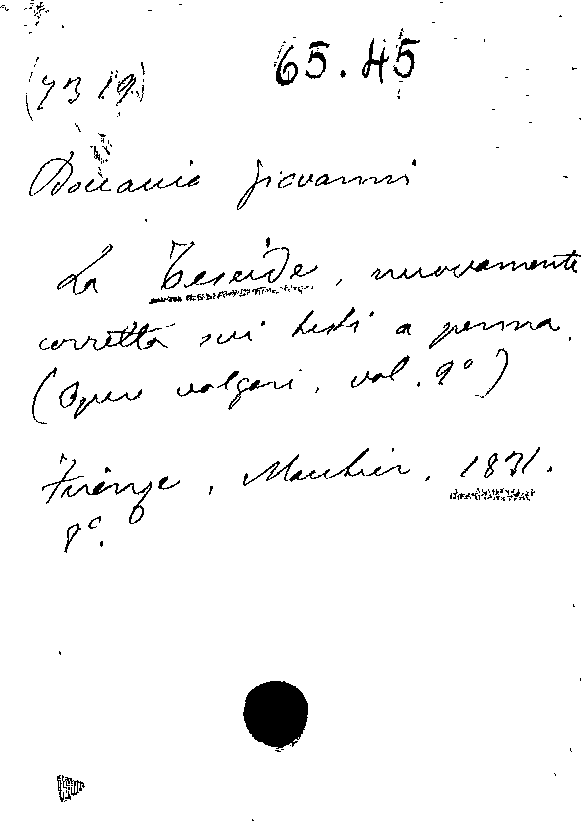 65.45
(7319)
Boccaccio Giovanni
La Teseide, nuovamente
corretta sui testi a penna.
(Opere volgari, vol. 9°)
Firenze, Moutier, 1831.
8°.